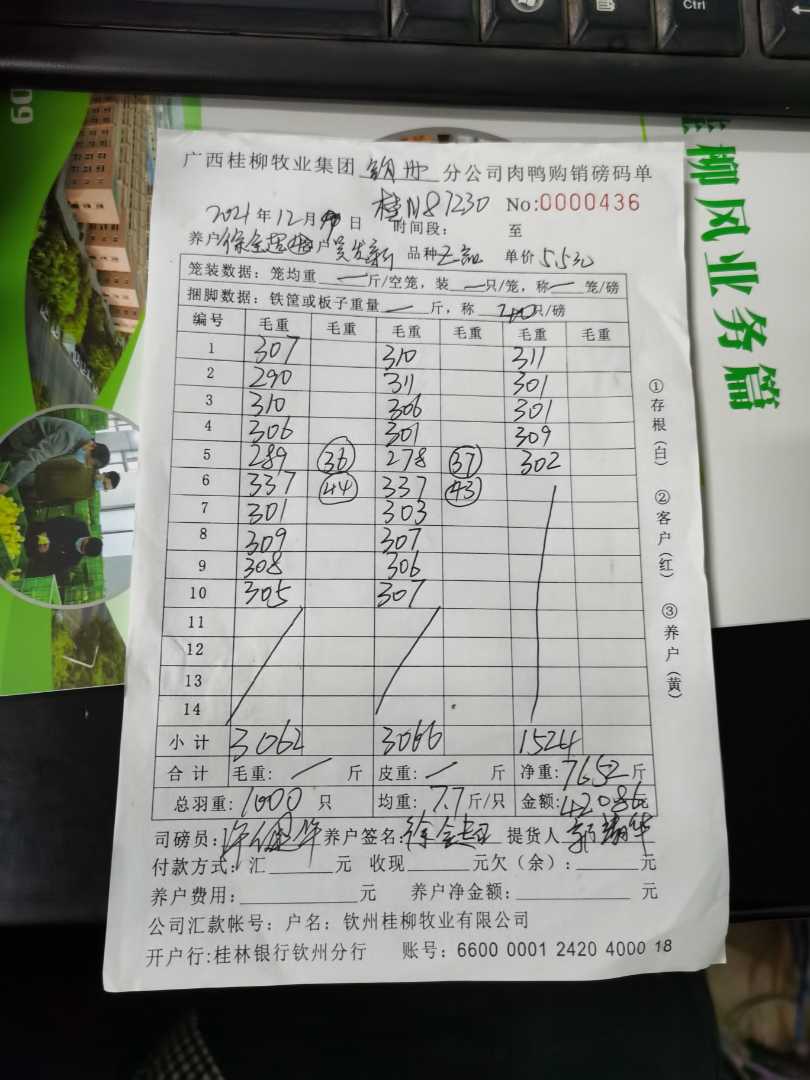 Ctrl
09
桂柳风业务篇
广西桂柳牧业集团 分公司肉鸭购销磅码单
桂N87230 No:0000436
2021年12月 日 时间段: 至
养户徐 户吴发新 品种 单价5.5元
笼装数据:笼均重 一 斤/空笼,装 一 只/笼,称 一 笼/磅
捆脚数据:铁筐或板子重量 一 斤,称 40 只/磅
编号 毛重 毛重 毛重 毛重 毛重 毛重
1 307 310 311
2 290 311 301
3 310 306 301
4 306 301 309
5 289 36 278 37 302
6 337 44 337 43
7 301 303
8 309 307
9 308 306
10 305 307
11
12
13
14
小计 3062 3066 1524
合计 毛重: / 斤 皮重: / 斤 净重:7652斤
总羽重:1000只 均重:7.7斤/只 金额:42086元
司磅员: 养户签名: 提货人
付款方式:汇 元 收现 元欠(余): 元
养户费用: 元 养户净金额: 元
公司汇款帐号:户名:钦州桂柳牧业有限公司
开户行:桂林银行钦州分行 账号:6600 0001 2420 4000 18
①存根(白) ②客户(红) ③养户(黄)